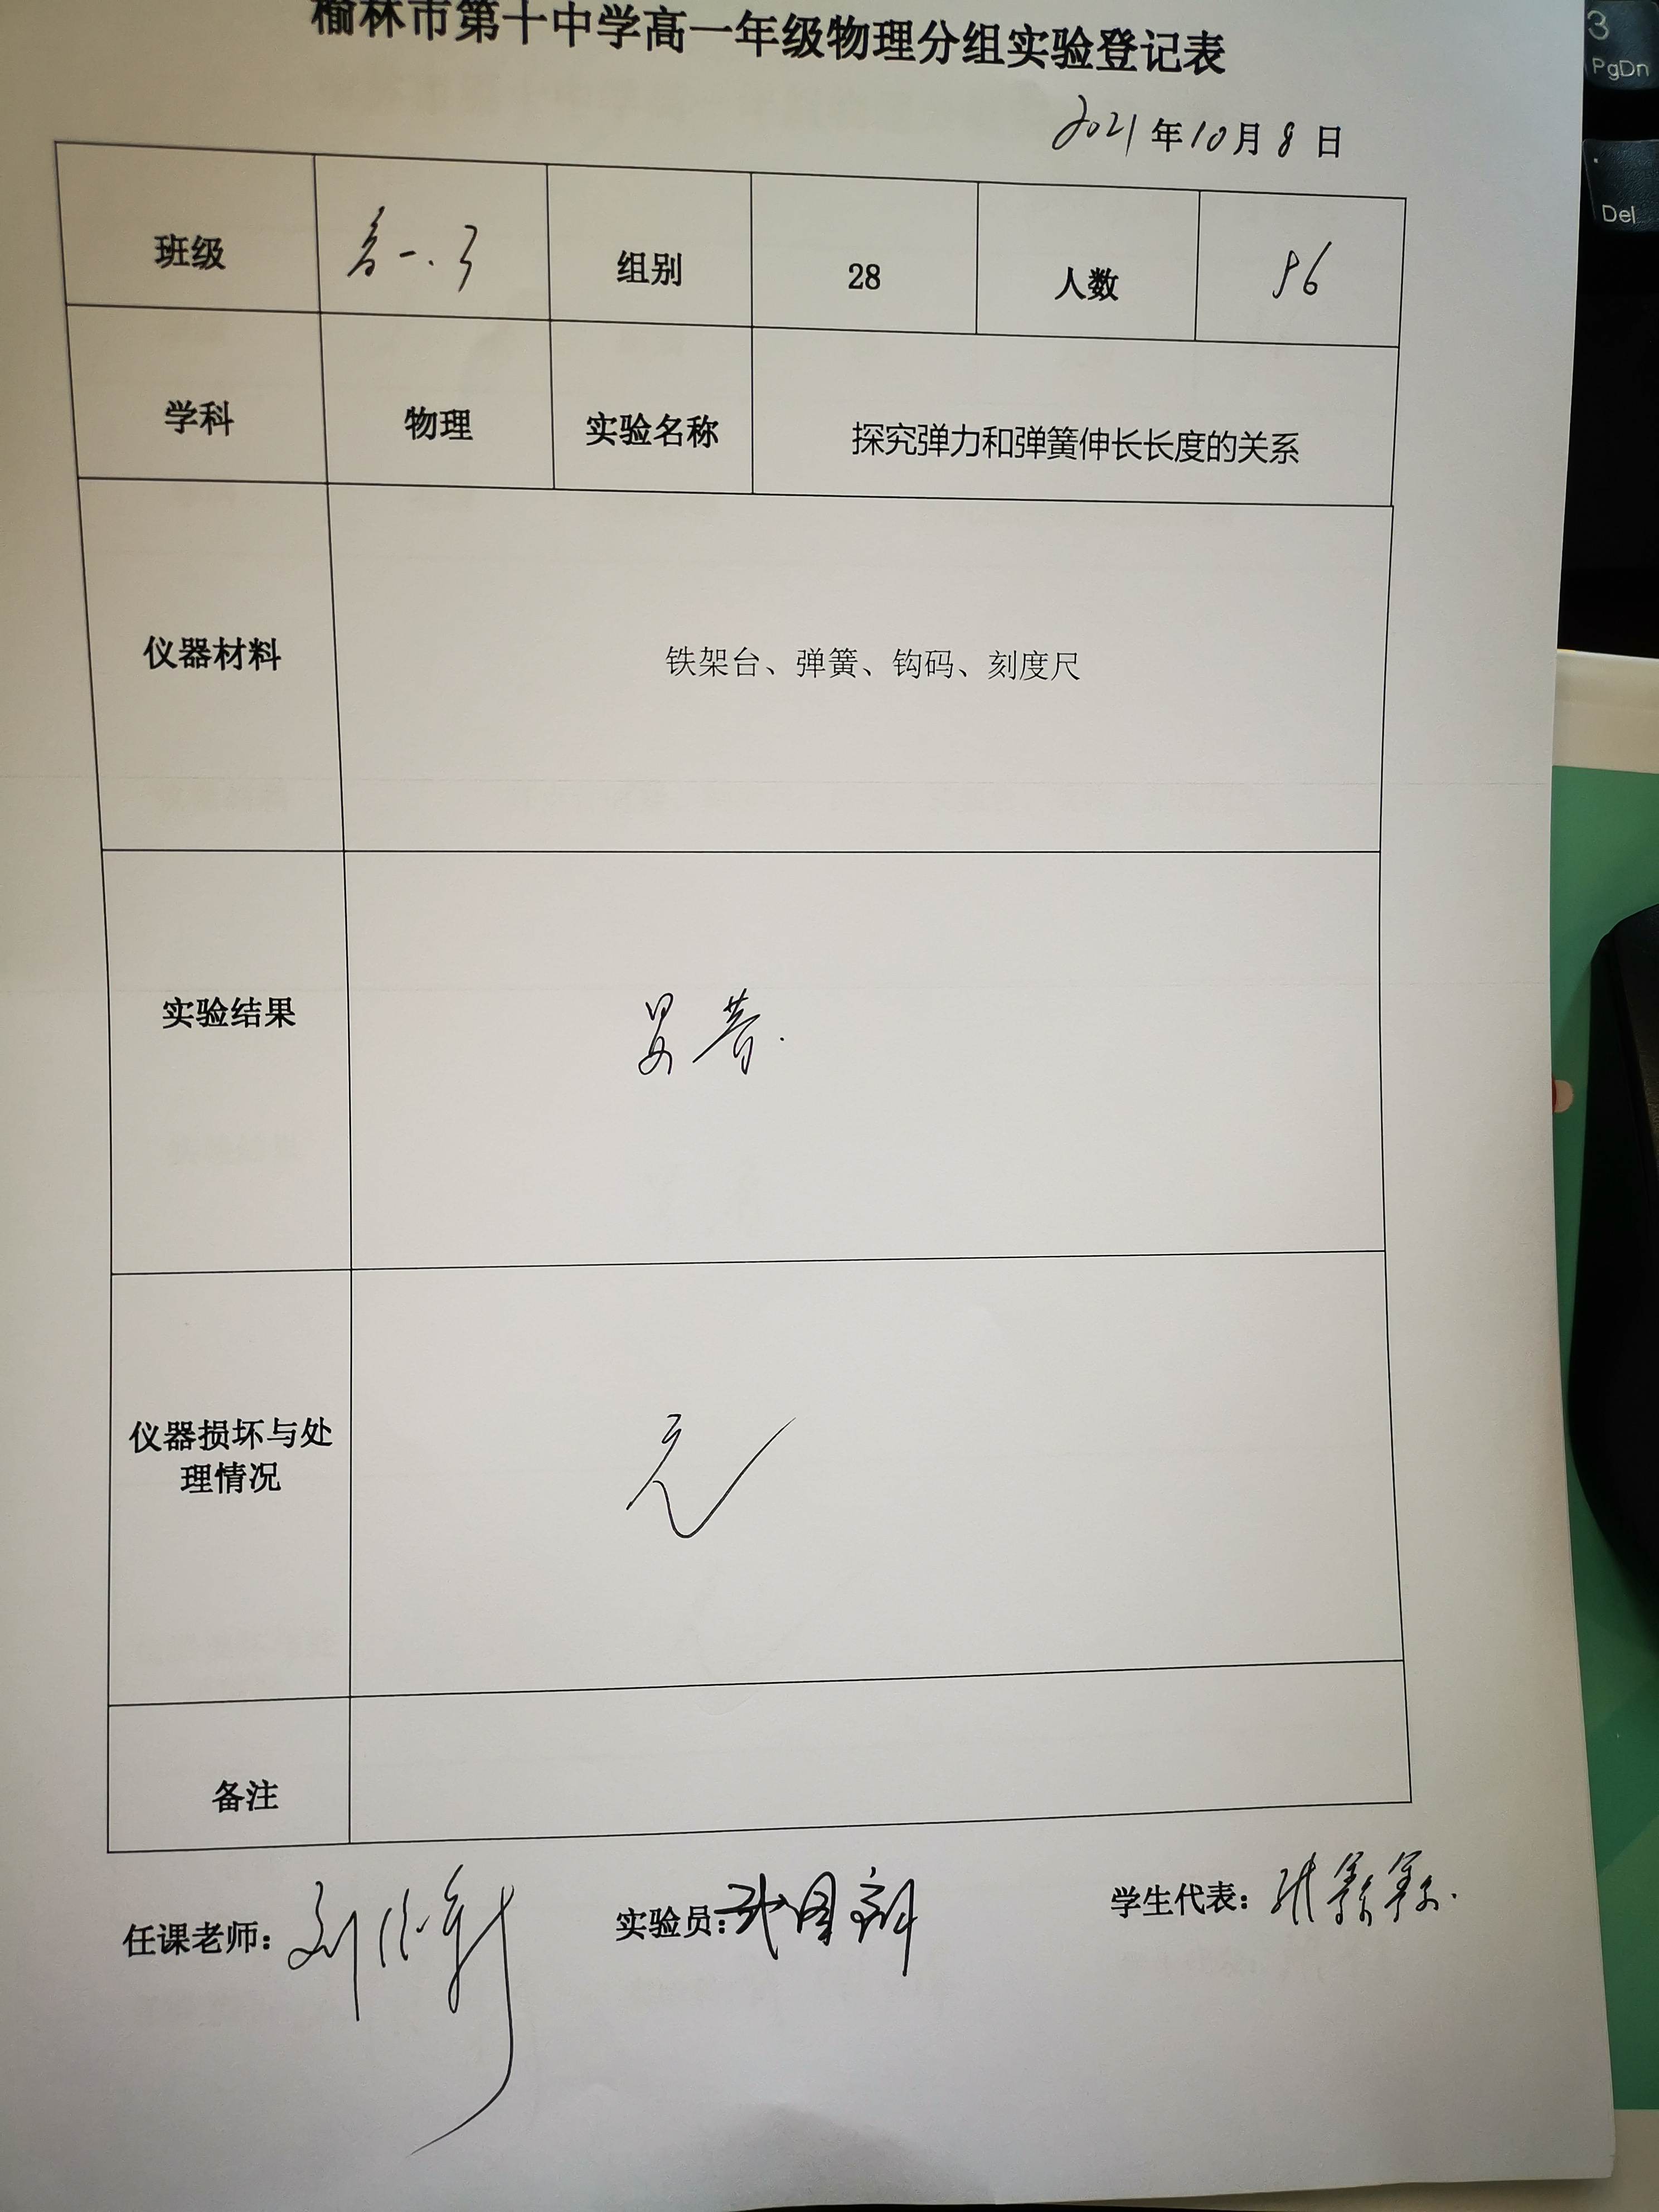 榆林市第十中学高一年级物理分组实验登记表
2021年10月8日
班级 高一.3 组别 28 人数 56
学科 物理 实验名称 探究弹力和弹簧伸长长度的关系
仪器材料 铁架台、弹簧、钩码、刻度尺
实验结果 显著.
仪器损坏与处
理情况 无
备注
任课老师： 刘 实验员： 学生代表： 张
3
PgDn
.
Del